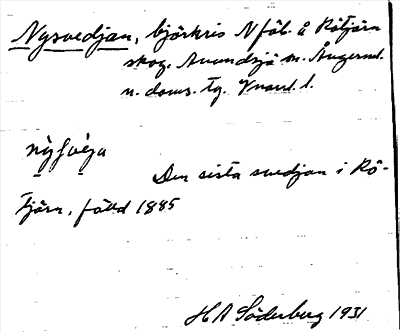 Nysvedjan, björkris N föb. å Rötjärn
skog. Anundsjö sn. Ångerml.
n. doms. tg. Vnaml. l.
nỳsvèja
Den sista svedjan i Rö-
tjärn, fälld 1885
H A Söderberg 1931